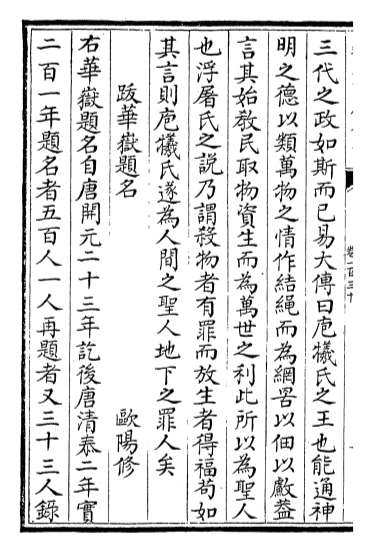 三代之政如斯而已易大傳曰庖犧氏之王也能通神
明之德以類萬物之情作結繩而為網罟以佃以漁蓋
言其始教民取物資生而為萬世之利此所以為聖人
也浮屠氏之説乃謂殺物者有罪而放生者得福苟如
其言則庖犧氏遂為人間之聖人地下之罪人矣
跋華嶽題名 歐陽修
右華嶽題名自唐開元二十三年訖後唐清泰二年實
二百一年題名者五百人一人再題者又三十三人錄